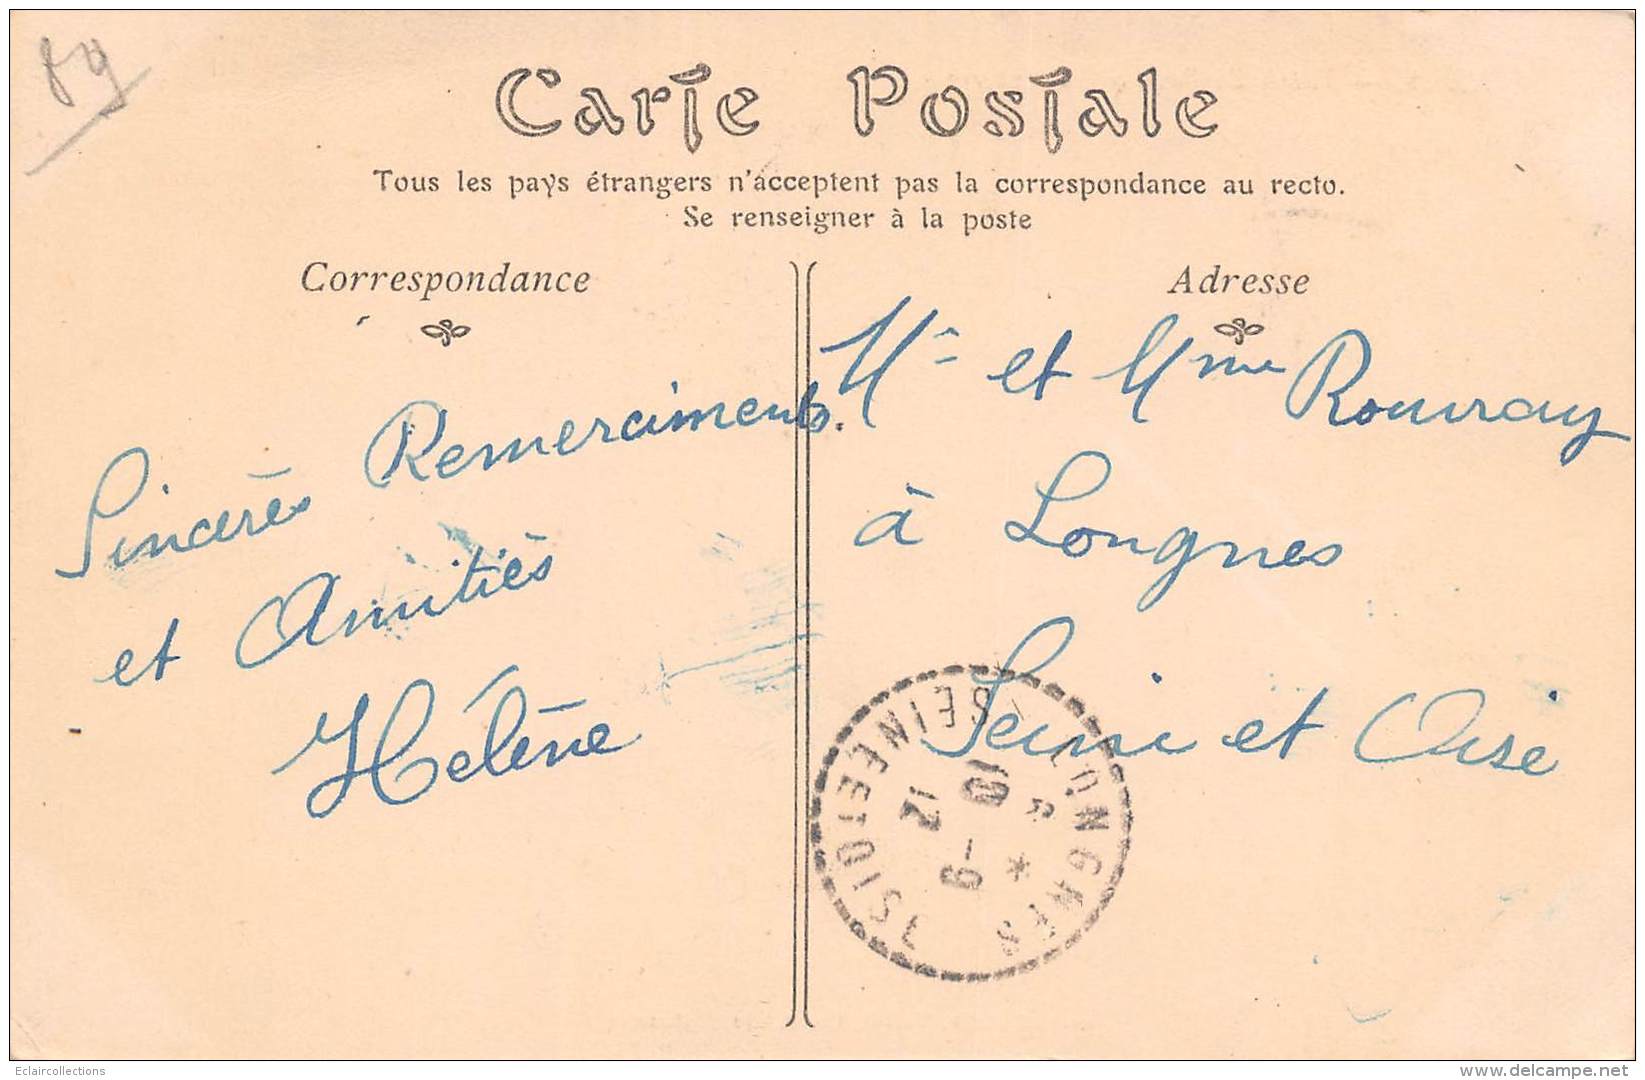 89
Carte Postale
Tous les pays étrangers n'acceptent pas la correspondance au recto.
Se renseigner à la poste
Correspondance
Sincères Remerciments.
et Amitiés
Hélène
Adresse
Mr et Mme Rouvray
à Longnes
Seine et Oise
LONGNES
SEINE ET OISE
10
6 - 
12
*
Eclaircollections
delcampe.net